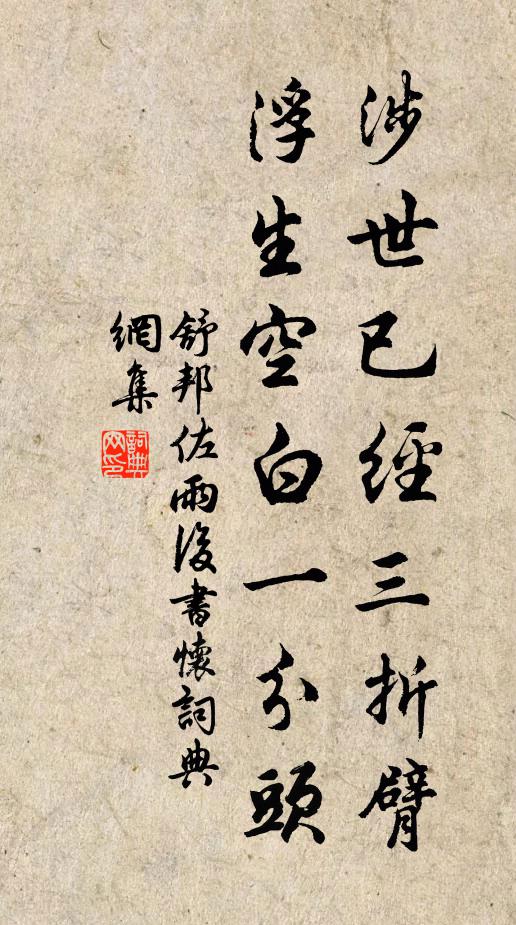 涉世已經三折臂
浮生空白一分頭
舒邦佐雨後書懷詞典
網集
詞典
网印